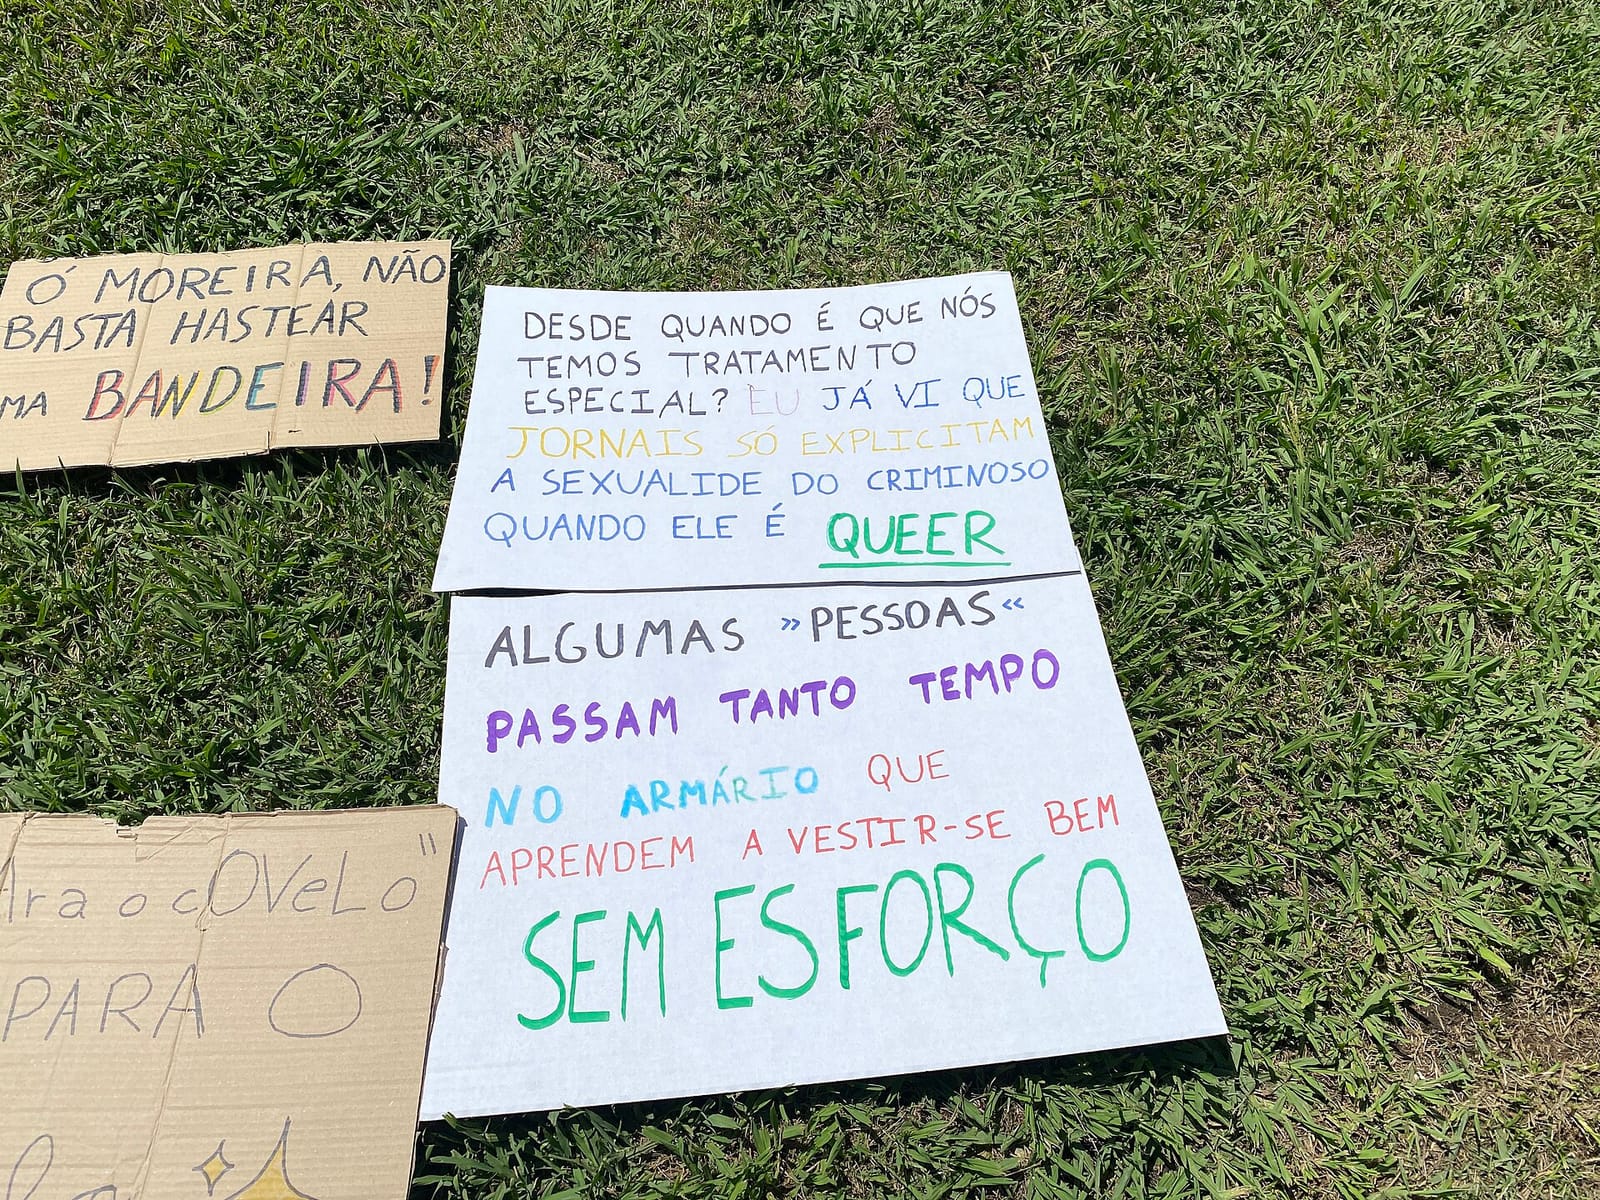 Ó MOREIRA, NÃO
BASTA HASTEAR
MA BANDEIRA!
DESDE QUANDO É QUE NÓS
TEMOS TRATAMENTO
ESPECIAL? EU JÁ VI QUE
JORNAIS SÓ EXPLICITAM
A SEXUALIDE DO CRIMINOSO
QUANDO ELE É QUEER
ALGUMAS »PESSOAS«
PASSAM TANTO TEMPO
NO ARMÁRIO QUE
APRENDEM A VESTIR-SE BEM
SEM ESFORÇO
Ara o cOVeLo"
PARA O